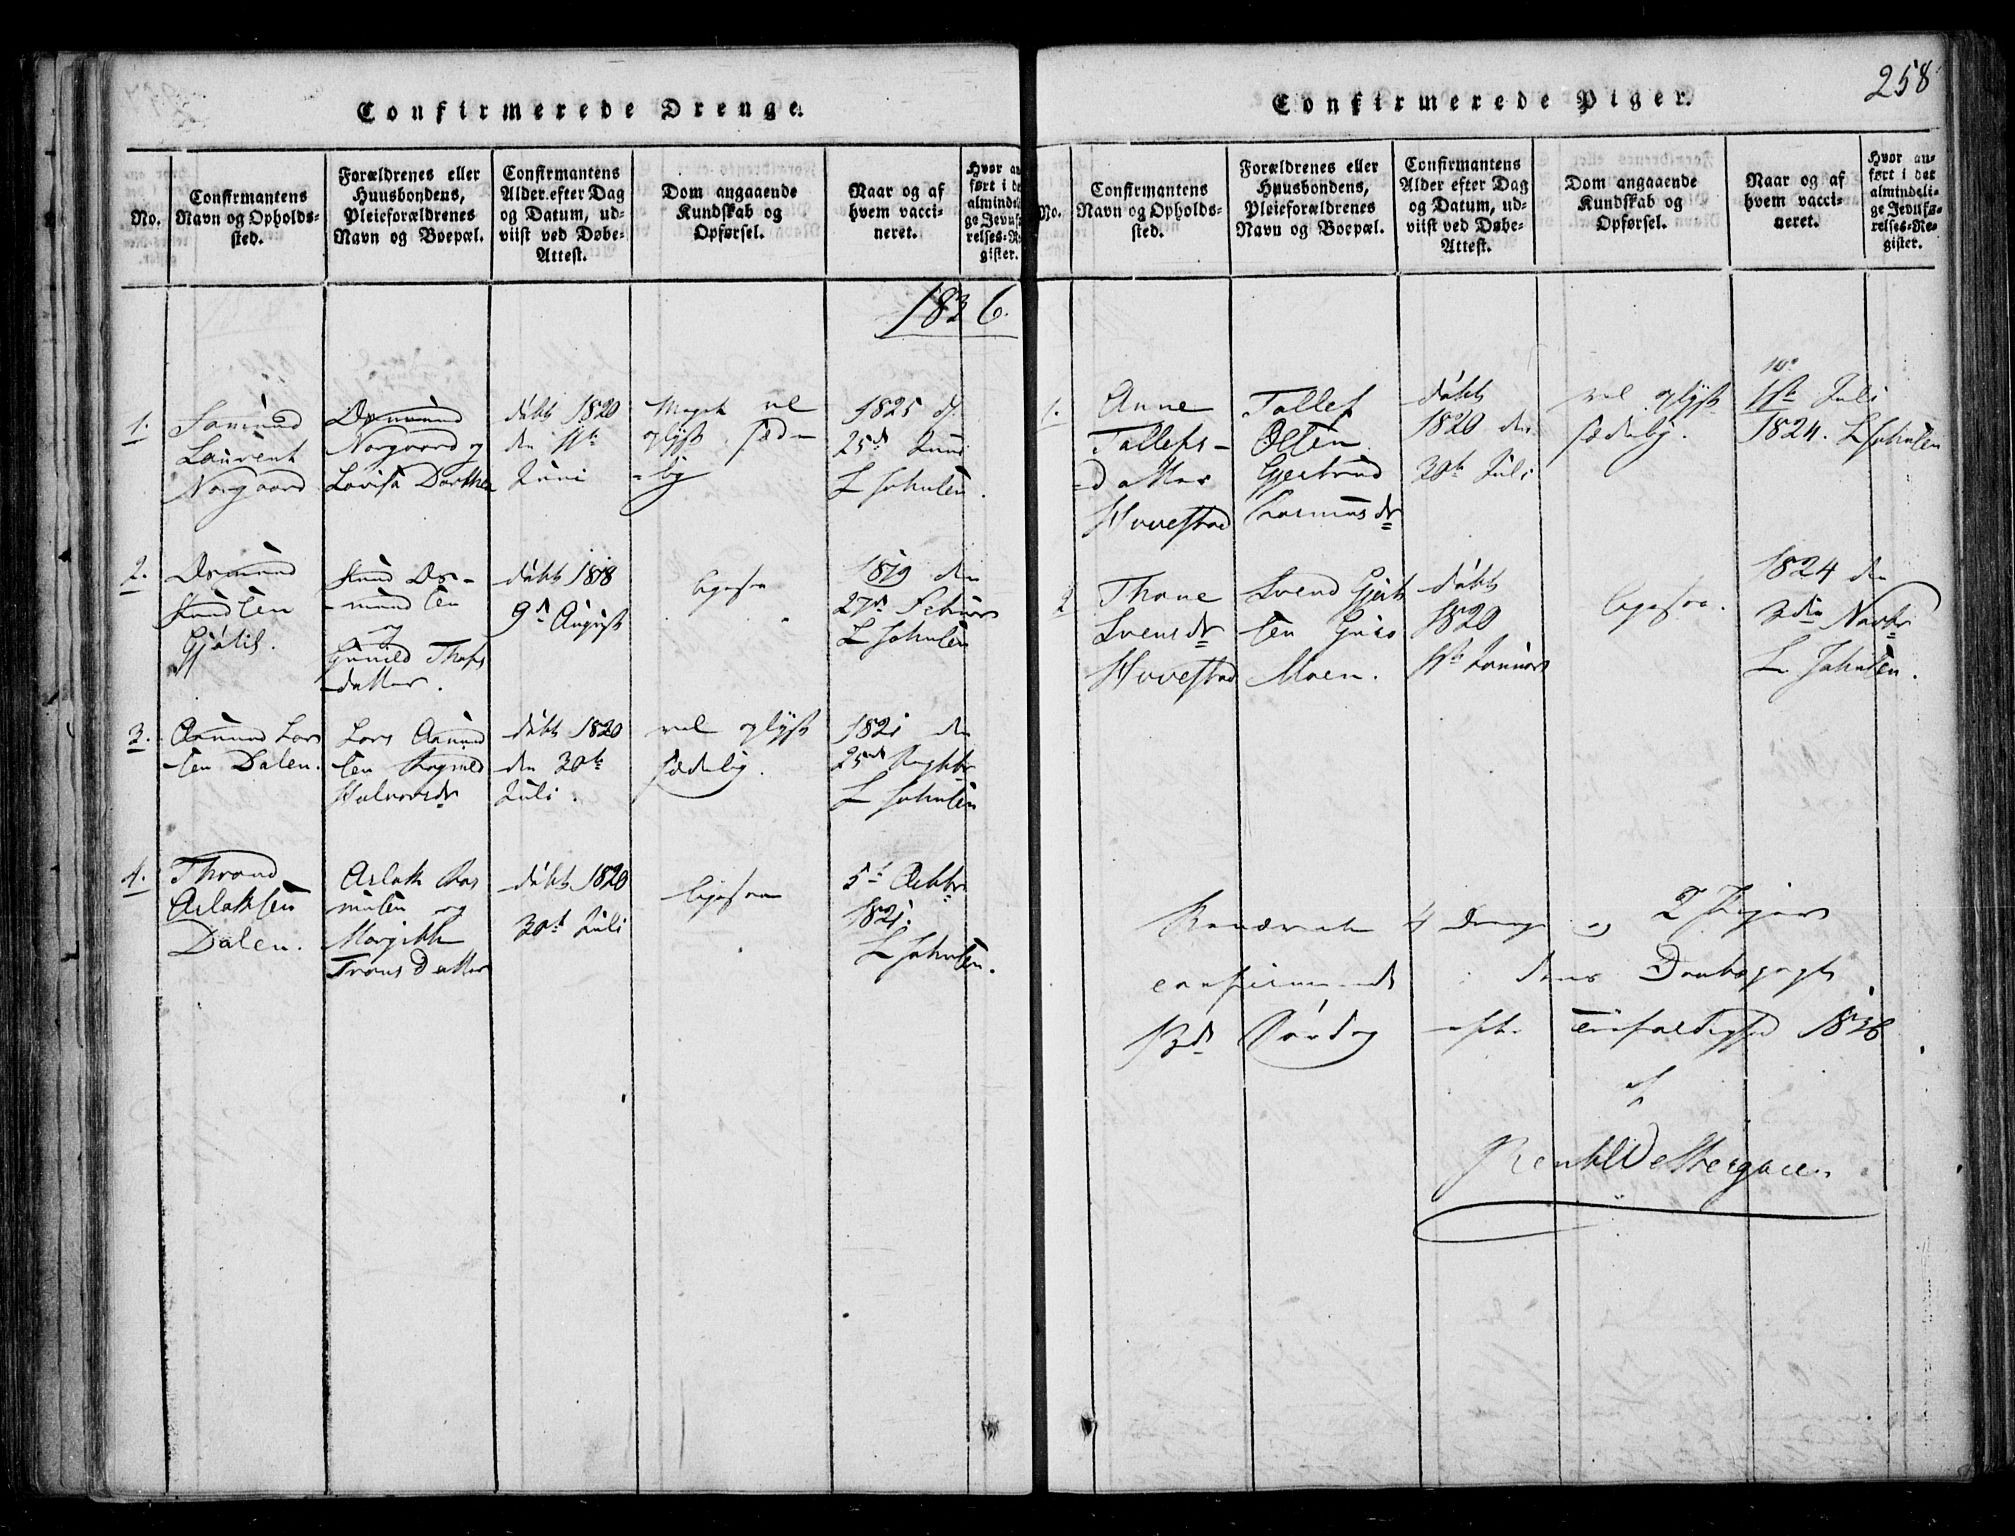 258
Confirmerede Drenge.
No.
Confirmantens
Navn og Opholds-
sted.
Forældrenes eller
Huusbondens,
Pleieforældrenes
Navn og Boepæl.
Confirmantens
Alder efter Dag
og Datum, ud-
viist ved Døbe-
Attest.
Dom angaaende
Kundskab og
Opførsel.
Naar og af
hvem vacci-
neret.
Hvor an
ført i de
almindel
ge Jevnf
relses-R
gister.
1836.
1.
Laurent
Norgaard
Norgaard og
Lovisa Dorthe
døbt 1820
den 11te
Juni
Meget vel
oplyst sæd-
-lig
1825 d.
25d Juni
L Johnsen.
2.
Osmund
Knudsen
Knud Os-
-mundsen
og
Gunild
datter.
døbt 1818
9d August
ligesaa
1819 den
27d Februar
L Johnsen
3.
Aanund Lars
sen Dalen.
Lars Aanund
sen Ragnild
Halvorsdr
døbt 1820
den 30te
Juli.
vel oplyst
sædelig.
1821 den
25de
L Johnsen
4.
Thrond
Aslaksen
Dalen.
Aslak Ras
musen og
Margitte
Trons Datter
døbt 1820
30te Juli
ligesaa
5te Octbr
1821.
L Johnsen.
Confirmerede Piger.
No.
Confirmantens
Navn og Opholds-
sted.
Forældrenes eller
Huusbondens,
Pleieforældrenes
Navn og Boepæl.
Confirmantens
Alder efter Dag
og Datum, ud-
viist ved Døbe-
Attest.
Dom angaaende
Kundskab og
Opførsel.
Naar og af
hvem vacci-
neret.
Hvor an-
ført i det
almindeli-
ge Jevnfø-
relses-Re-
gister.
1.
Anne
Tallefs-
-datter
Hovestad
Tallef
Olsen
Gjertrud
Rasmusdr
døbt
1820 den
30te Juli
vel oplyst
sædelig.
Juli
1824. L Johnsen
2
Thone
Svensdr
Hovestad
Svend
sen
Moen.
døbt
1820
11te Januar
ligesaa.
1824 den
3die Novbr
L Johnsen.
4 Drenge og 2 Piger
confirmerede
13de Søndag efter Trefoldighed 1836
af